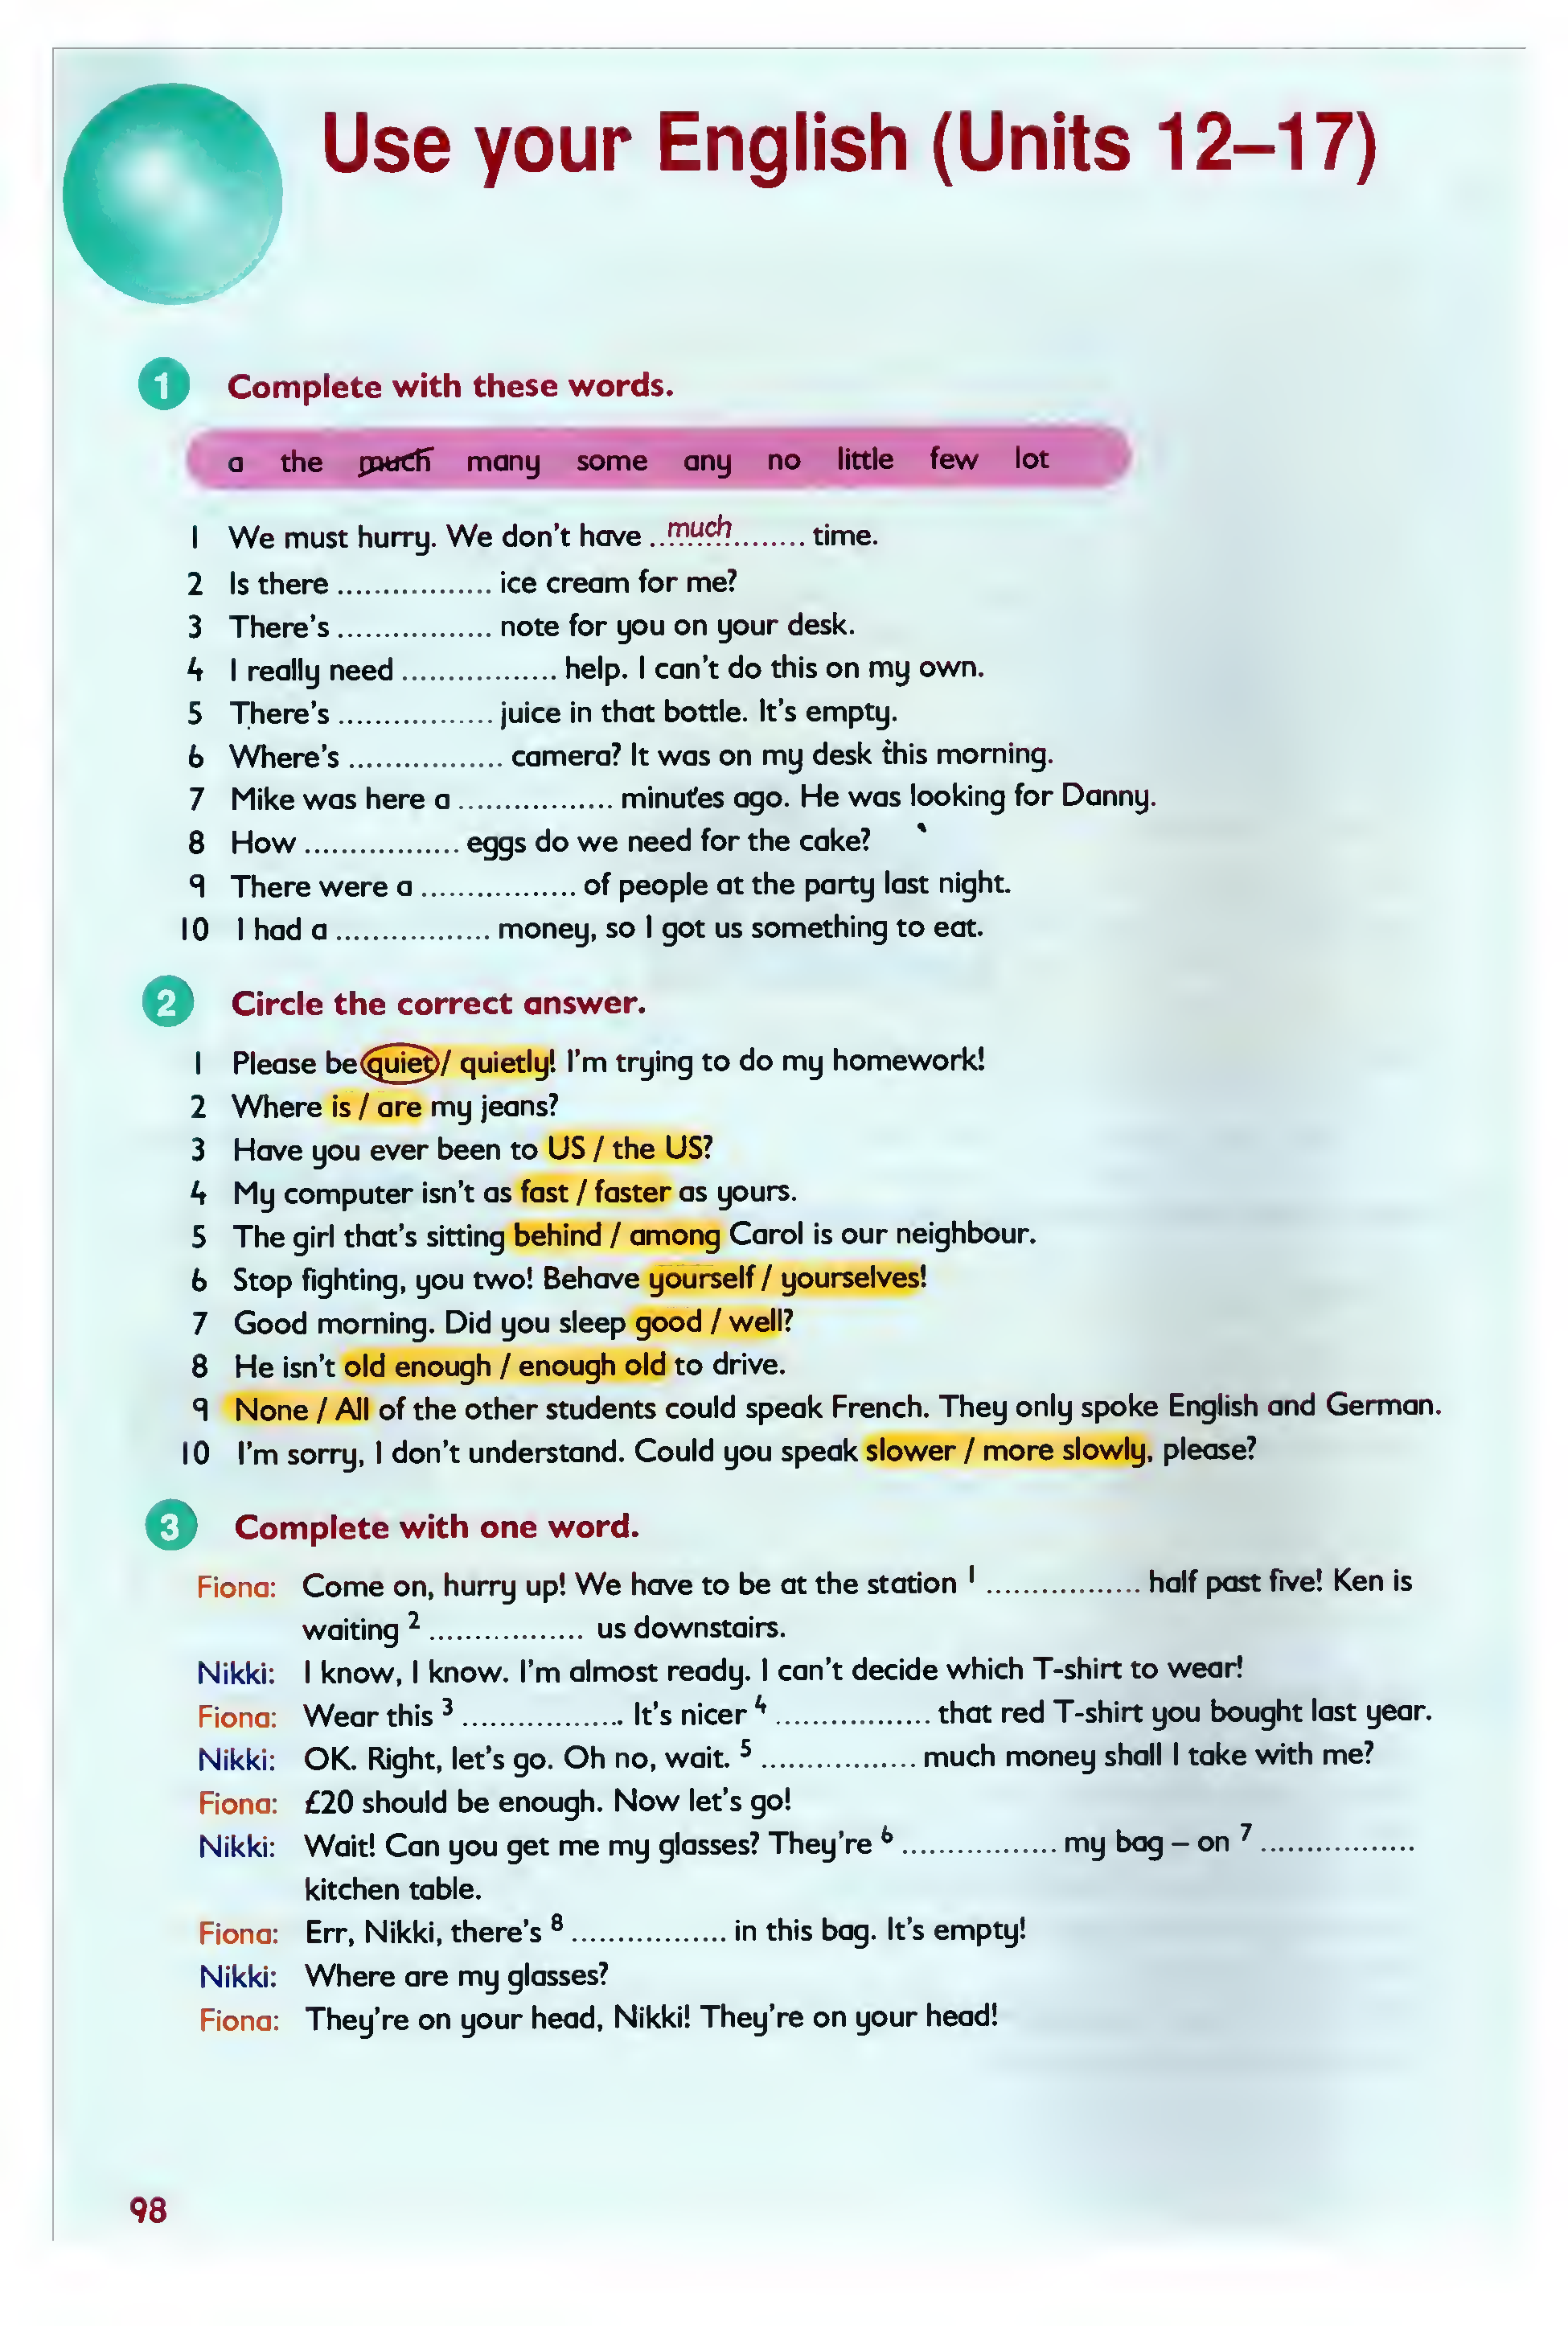 Use your English (Units 12–17)
1 Complete with these words.
a the much many some any no little few lot
1 We must hurry. We don't have ..much........ time.
2 Is there ................. ice cream for me?
3 There's ................. note for you on your desk.
4 I really need ................. help. I can't do this on my own.
5 There's ................. juice in that bottle. It's empty.
6 Where's ................. camera? It was on my desk this morning.
7 Mike was here a ................. minutes ago. He was looking for Danny.
8 How ................. eggs do we need for the cake?
9 There were a ................. of people at the party last night.
10 I had a ................. money, so I got us something to eat.
2 Circle the correct answer.
1 Please be quiet / quietly! I'm trying to do my homework!
2 Where is / are my jeans?
3 Have you ever been to US / the US?
4 My computer isn't as fast / faster as yours.
5 The girl that's sitting behind / among Carol is our neighbour.
6 Stop fighting, you two! Behave yourself / yourselves!
7 Good morning. Did you sleep good / well?
8 He isn't old enough / enough old to drive.
9 None / All of the other students could speak French. They only spoke English and German.
10 I'm sorry, I don't understand. Could you speak slower / more slowly, please?
3 Complete with one word.
Fiona: Come on, hurry up! We have to be at the station 1 ................. half past five! Ken is
waiting 2 ................. us downstairs.
Nikki: I know, I know. I'm almost ready. I can't decide which T-shirt to wear!
Fiona: Wear this 3 ................. . It's nicer 4 ................. that red T-shirt you bought last year.
Nikki: OK. Right, let's go. Oh no, wait. 5 ................. much money shall I take with me?
Fiona: £20 should be enough. Now let's go!
Nikki: Wait! Can you get me my glasses? They're 6 ................. my bag – on 7 .................
kitchen table.
Fiona: Err, Nikki, there's 8 ................. in this bag. It's empty!
Nikki: Where are my glasses?
Fiona: They're on your head, Nikki! They're on your head!
98